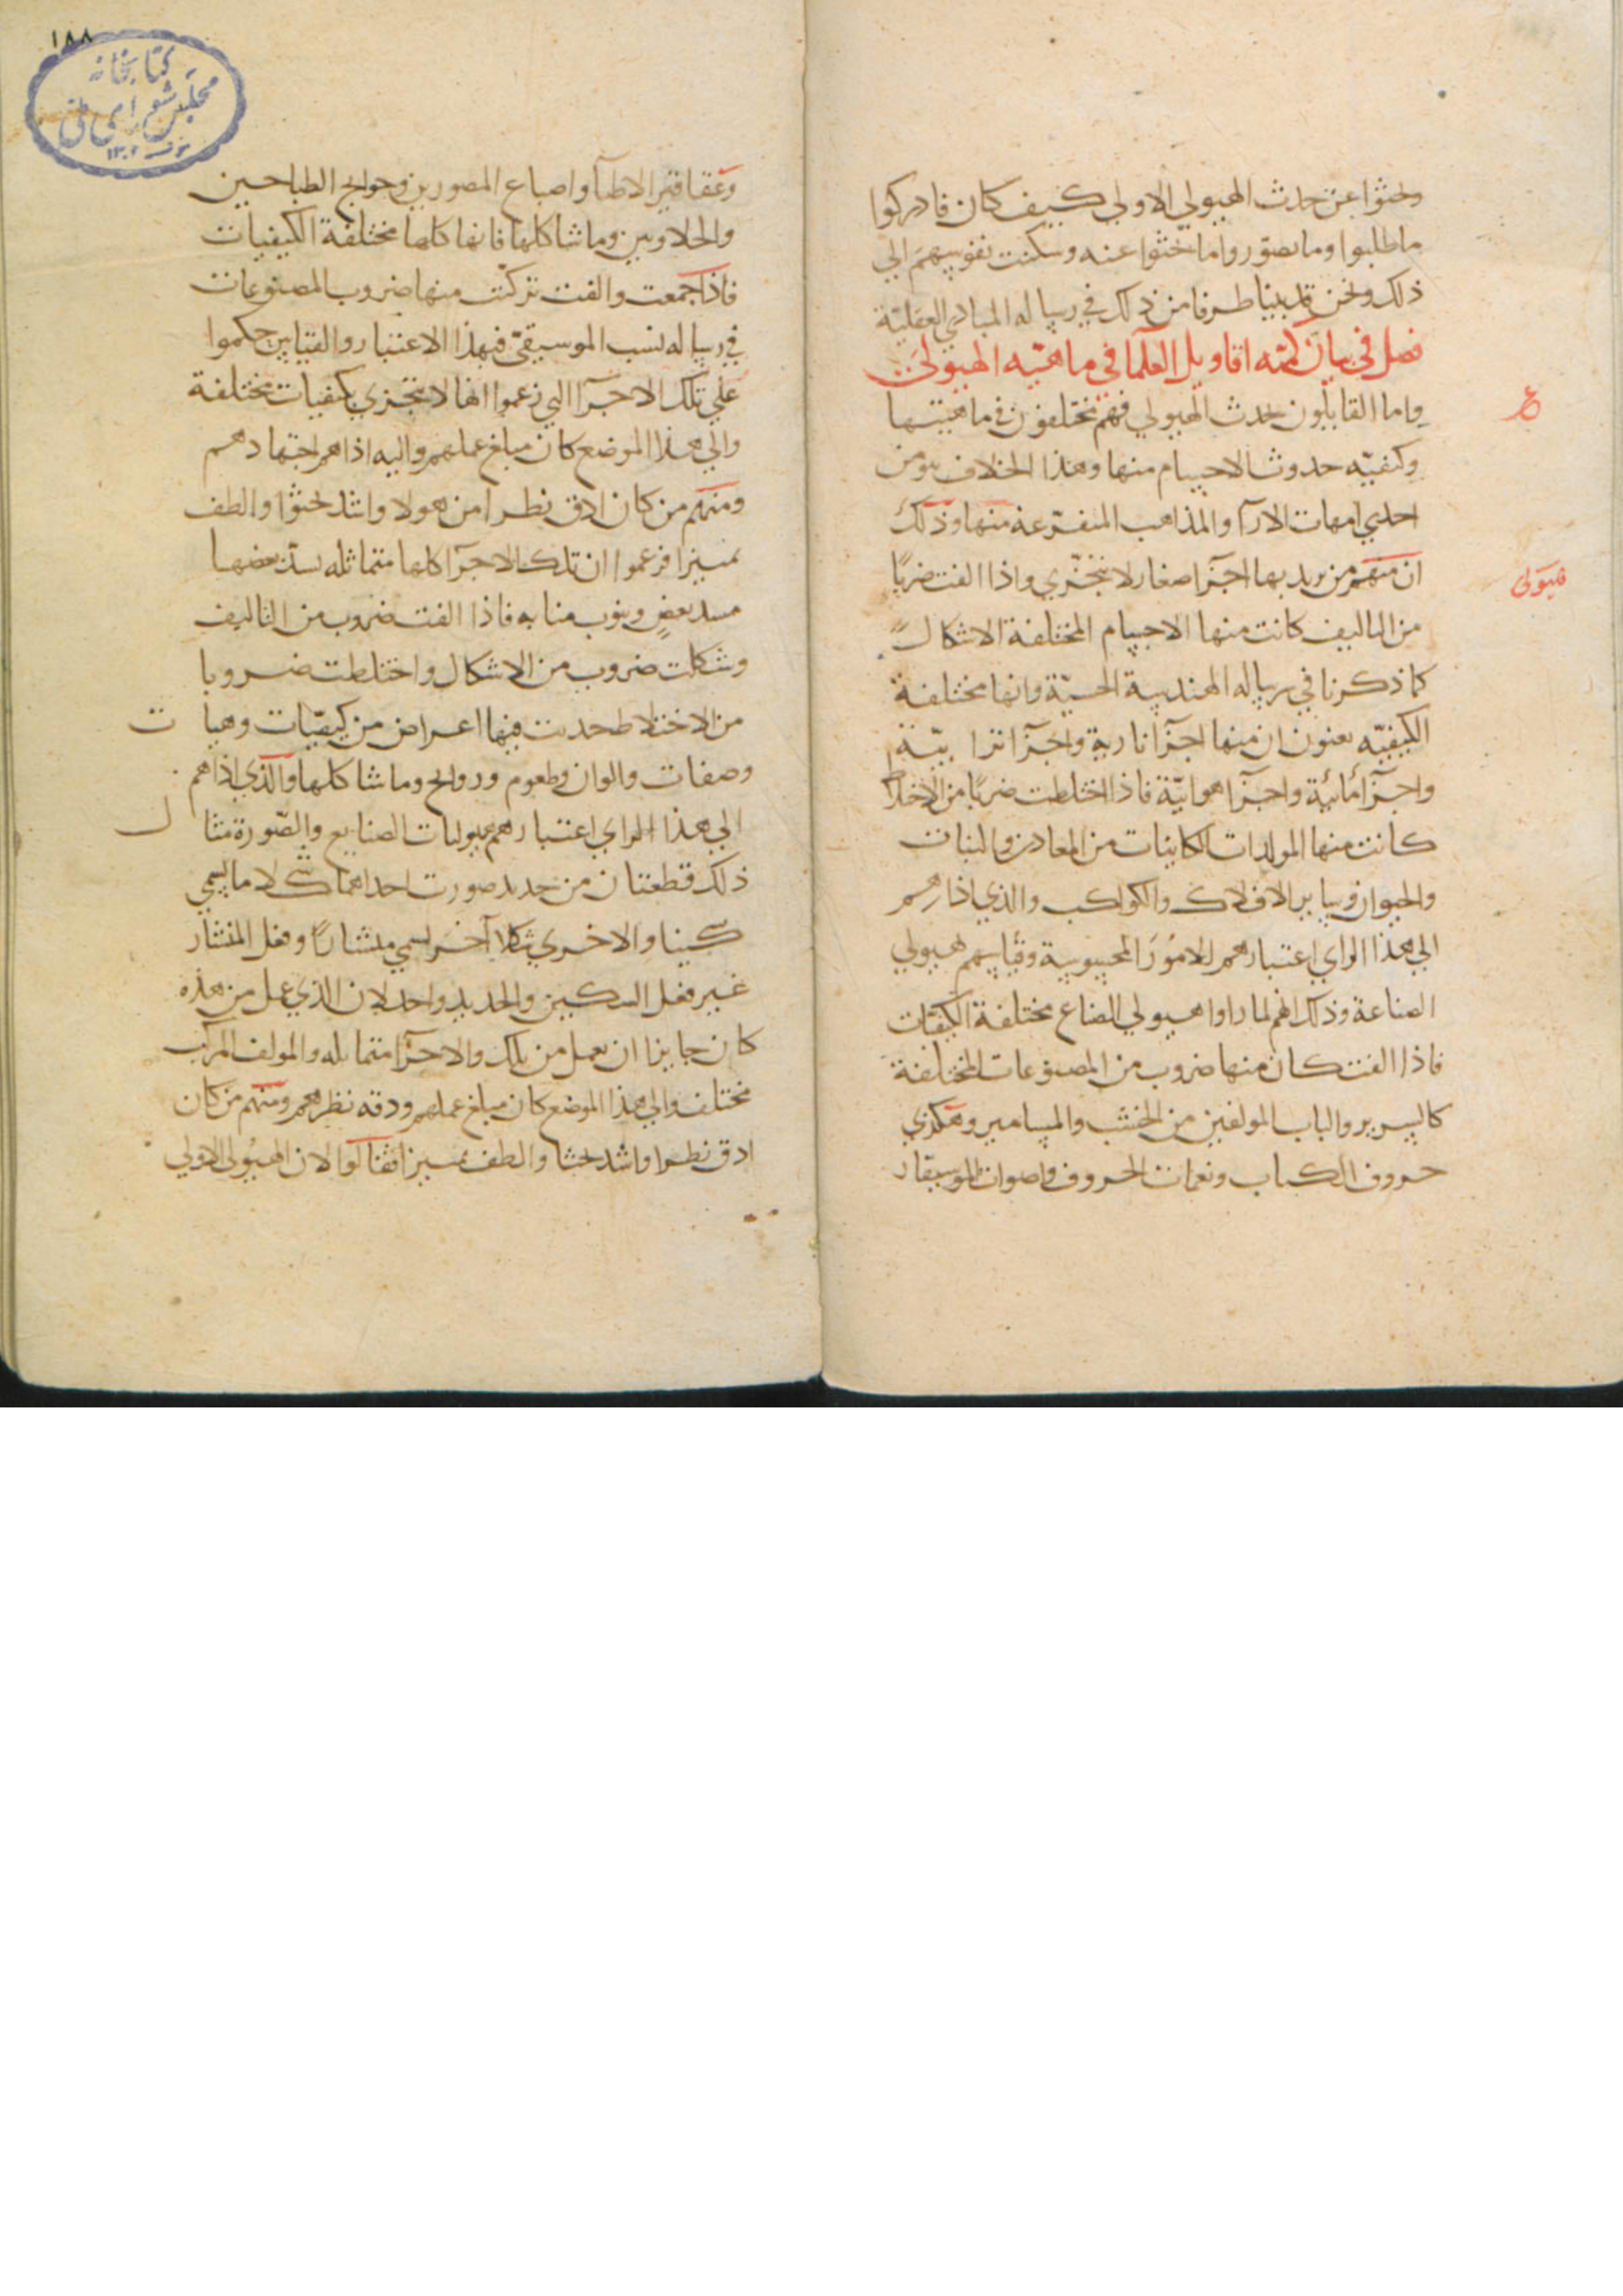 وبحثوا عن حدث الهيولي الاولي كيف كان فادركوا
ما طلبوا وما تصوروا ما بحثوا عنه وسكنت نفوسهم الي
ذلك ونحن قد بينا طرفا من ذلك في رساله المبادي العقلية
فصل في بيان كميّه اقاويل العلما في ماهيّه الهيولي
واما القايلون بحدث الهيولي فهم مختلفون في ماهيتها
وكيفيّه حدوث الاجسام منها وهذا الخلاف هو من
احدي امهات الارآ والمذاهب المتفرعة منها وذلك
ان منهم من يريد بها اجزآ صغار لا تتجزي واذا الفت ضربًا
من التاليف كانت منها الاجسام المختلفة الاشكال
كما ذكرنا في رساله الهندسة الحسيّة وانها مختلفة
الكيفيّه يعنون ان منها اجزآ نارية واجزآ ترابيّة
واجزآ مائية واجزآ هوائيّة فاذا اختلطت ضربًا من الاختلاط
كانت منها المولدات الكاينات من المعادن والنبات
والحيوان وساير الافلاك والكواكب والذي اذارهم
الي هذا الراي اعتبارهم الامور المحسوسة وقياسهم هيولي
الصناعة وذلك انهم لما راوا هيولي الصناع مختلفة الكيفيات
فاذا الفت كان منها ضروب من المصنوعات المختلفة
كالسرير والباب المولفين من الخشب والمسامير وهكذي
حروف الكتاب ونغمات الحروف واصوات الموسيقار
ع
هيولى
١٨٨
كتابخانه
مجلس شوراى ملى
وعقاقير الاطبآ واصباغ المصورين وحوايج الطباخين
والحلاويين وما شاكلها فانها كلها مختلفة الكيفيات
فاذا جمعت والفت تركبّت منها ضروب المصنوعات
في رساله نسب الموسيقيّ فبهذا الاعتبار والقياس حكموا
علي تلك الاجزآ التي زعموا انها لا تتجزي بكيفيات مختلفة
والي هذا الموضع كان مبلغ عملهم واليه اذاهم اجتهادهم
ومنهم من كان ادق نظرا من هولا واشد بحثوا والطف
تميزا فزعموا ان تلك الاجزآ كلها متماثله يسدّ بعضها
مسد بعضٍ وينوب منابه فاذا الفت ضروب من التاليف
وشكلت ضروب من الاشكال واختلطت ضروبا
من الاختلاط حدثت فيها اعراض من كيفيّات وهيات
وصفات والوان وطعوم وروايح وما شاكلها والذي اذاهم
الي هذا الراي اعتبارهم هيوليات الصنايع والصّورة مثال
ذلك قطعتان من حديد صورت احداهما شكلا ما يسمي
سكينا والاخري شكلا آخر يسمي منشارًا وفعل المنشار
غير فعل السكين والحديد واحد لان الذي عمل من هذه
كان جايزا ان يعمل من تلك والاجزآ متماثله والمولف المركب
مختلف والي هذا الموضع كان مبلغ عملهم ودقه نظرهم ومنهم من كان
ادق نظرا واشد بحثا والطف تميزا فقالوا لان الهيولي الاولي